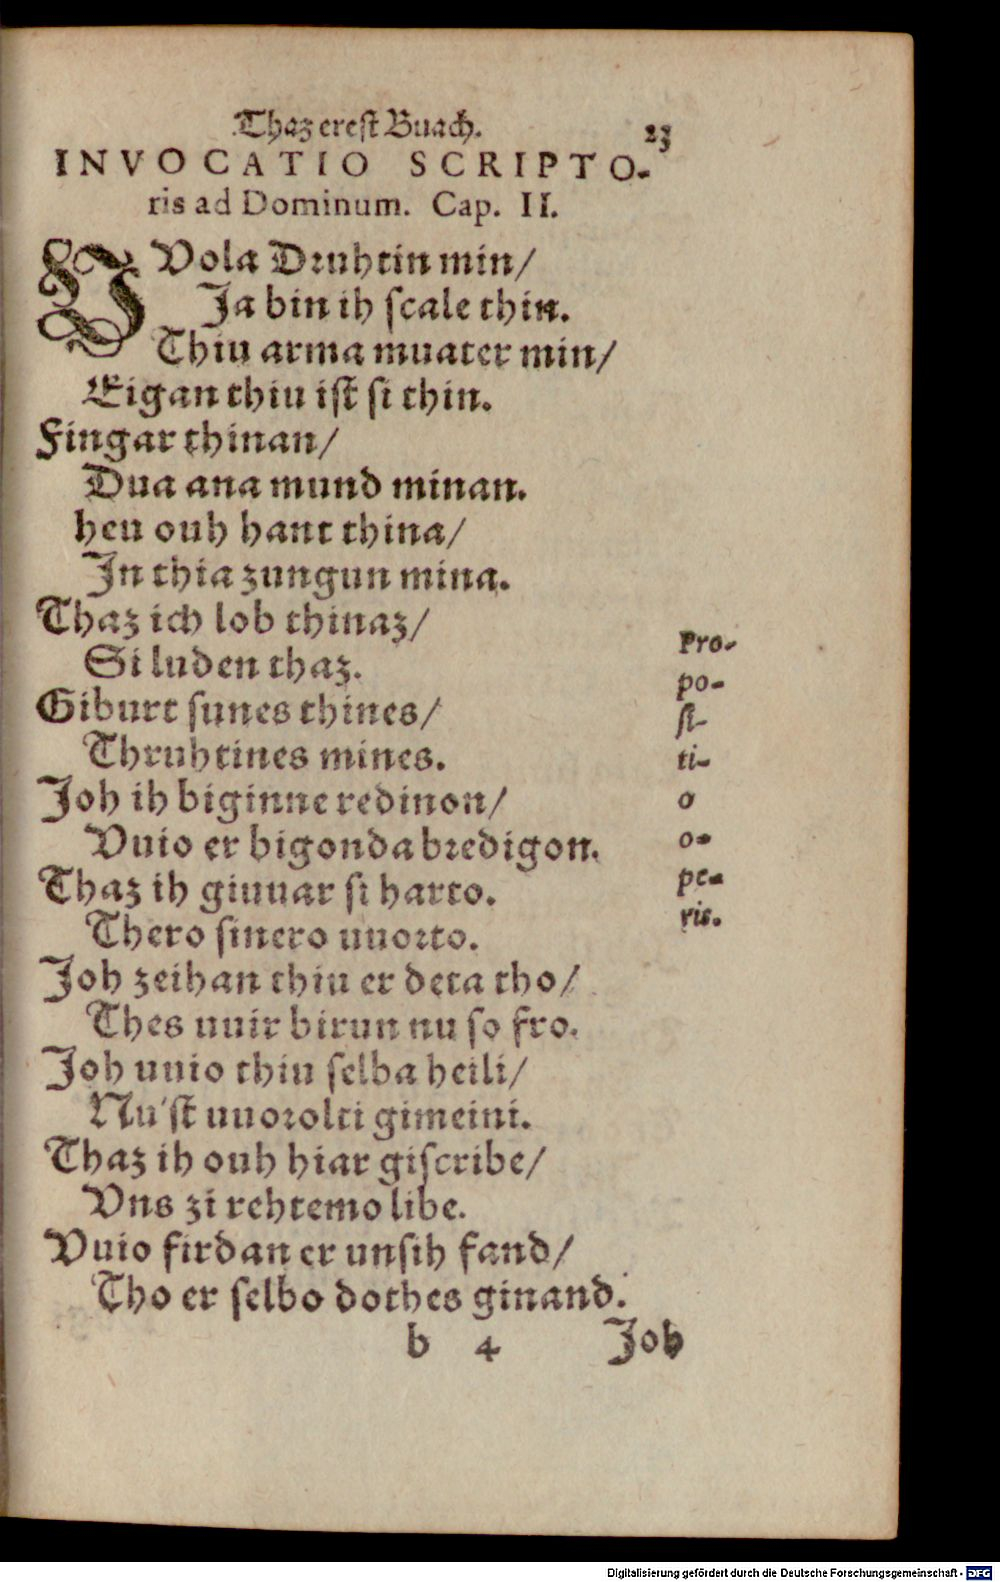 Thaz erest Buach. 23
INVOCATIO SCRIPTO-
ris ad Dominum. Cap. II.
VVola Druhtin min/
Ja bin ih scale thin.
Thiu arma muater min/
Eigan thiu ist si thin.
Fingar thinan/
Dua ana mund minan.
heu ouh hant thina/
In thia zungun mina.
Thaz ich lob thinaz/
Si luden thaz.
Giburt sunes thines/
Thruhtines mines.
Joh ih biginne redinon/
Vuio er bigonda bredigon.
Thaz ih giuuar si harto.
Thero sinero uuorto.
Joh zeihan thiu er deta tho/
Thes uuir birun nu so fro.
Joh uuio thiu selba heili/
Nu'st uuorolti gimeini.
Thaz ih ouh hiar giscribe/
Vns zi rehtemo libe.
Vuio firdan er unsih fand/
Tho er selbo dothes ginand.
b 4 Joh
Pro-
po-
si-
ti-
o
o-
pe-
ris.
Digitalisierung gefördert durch die Deutsche Forschungsgemeinschaft - DFG